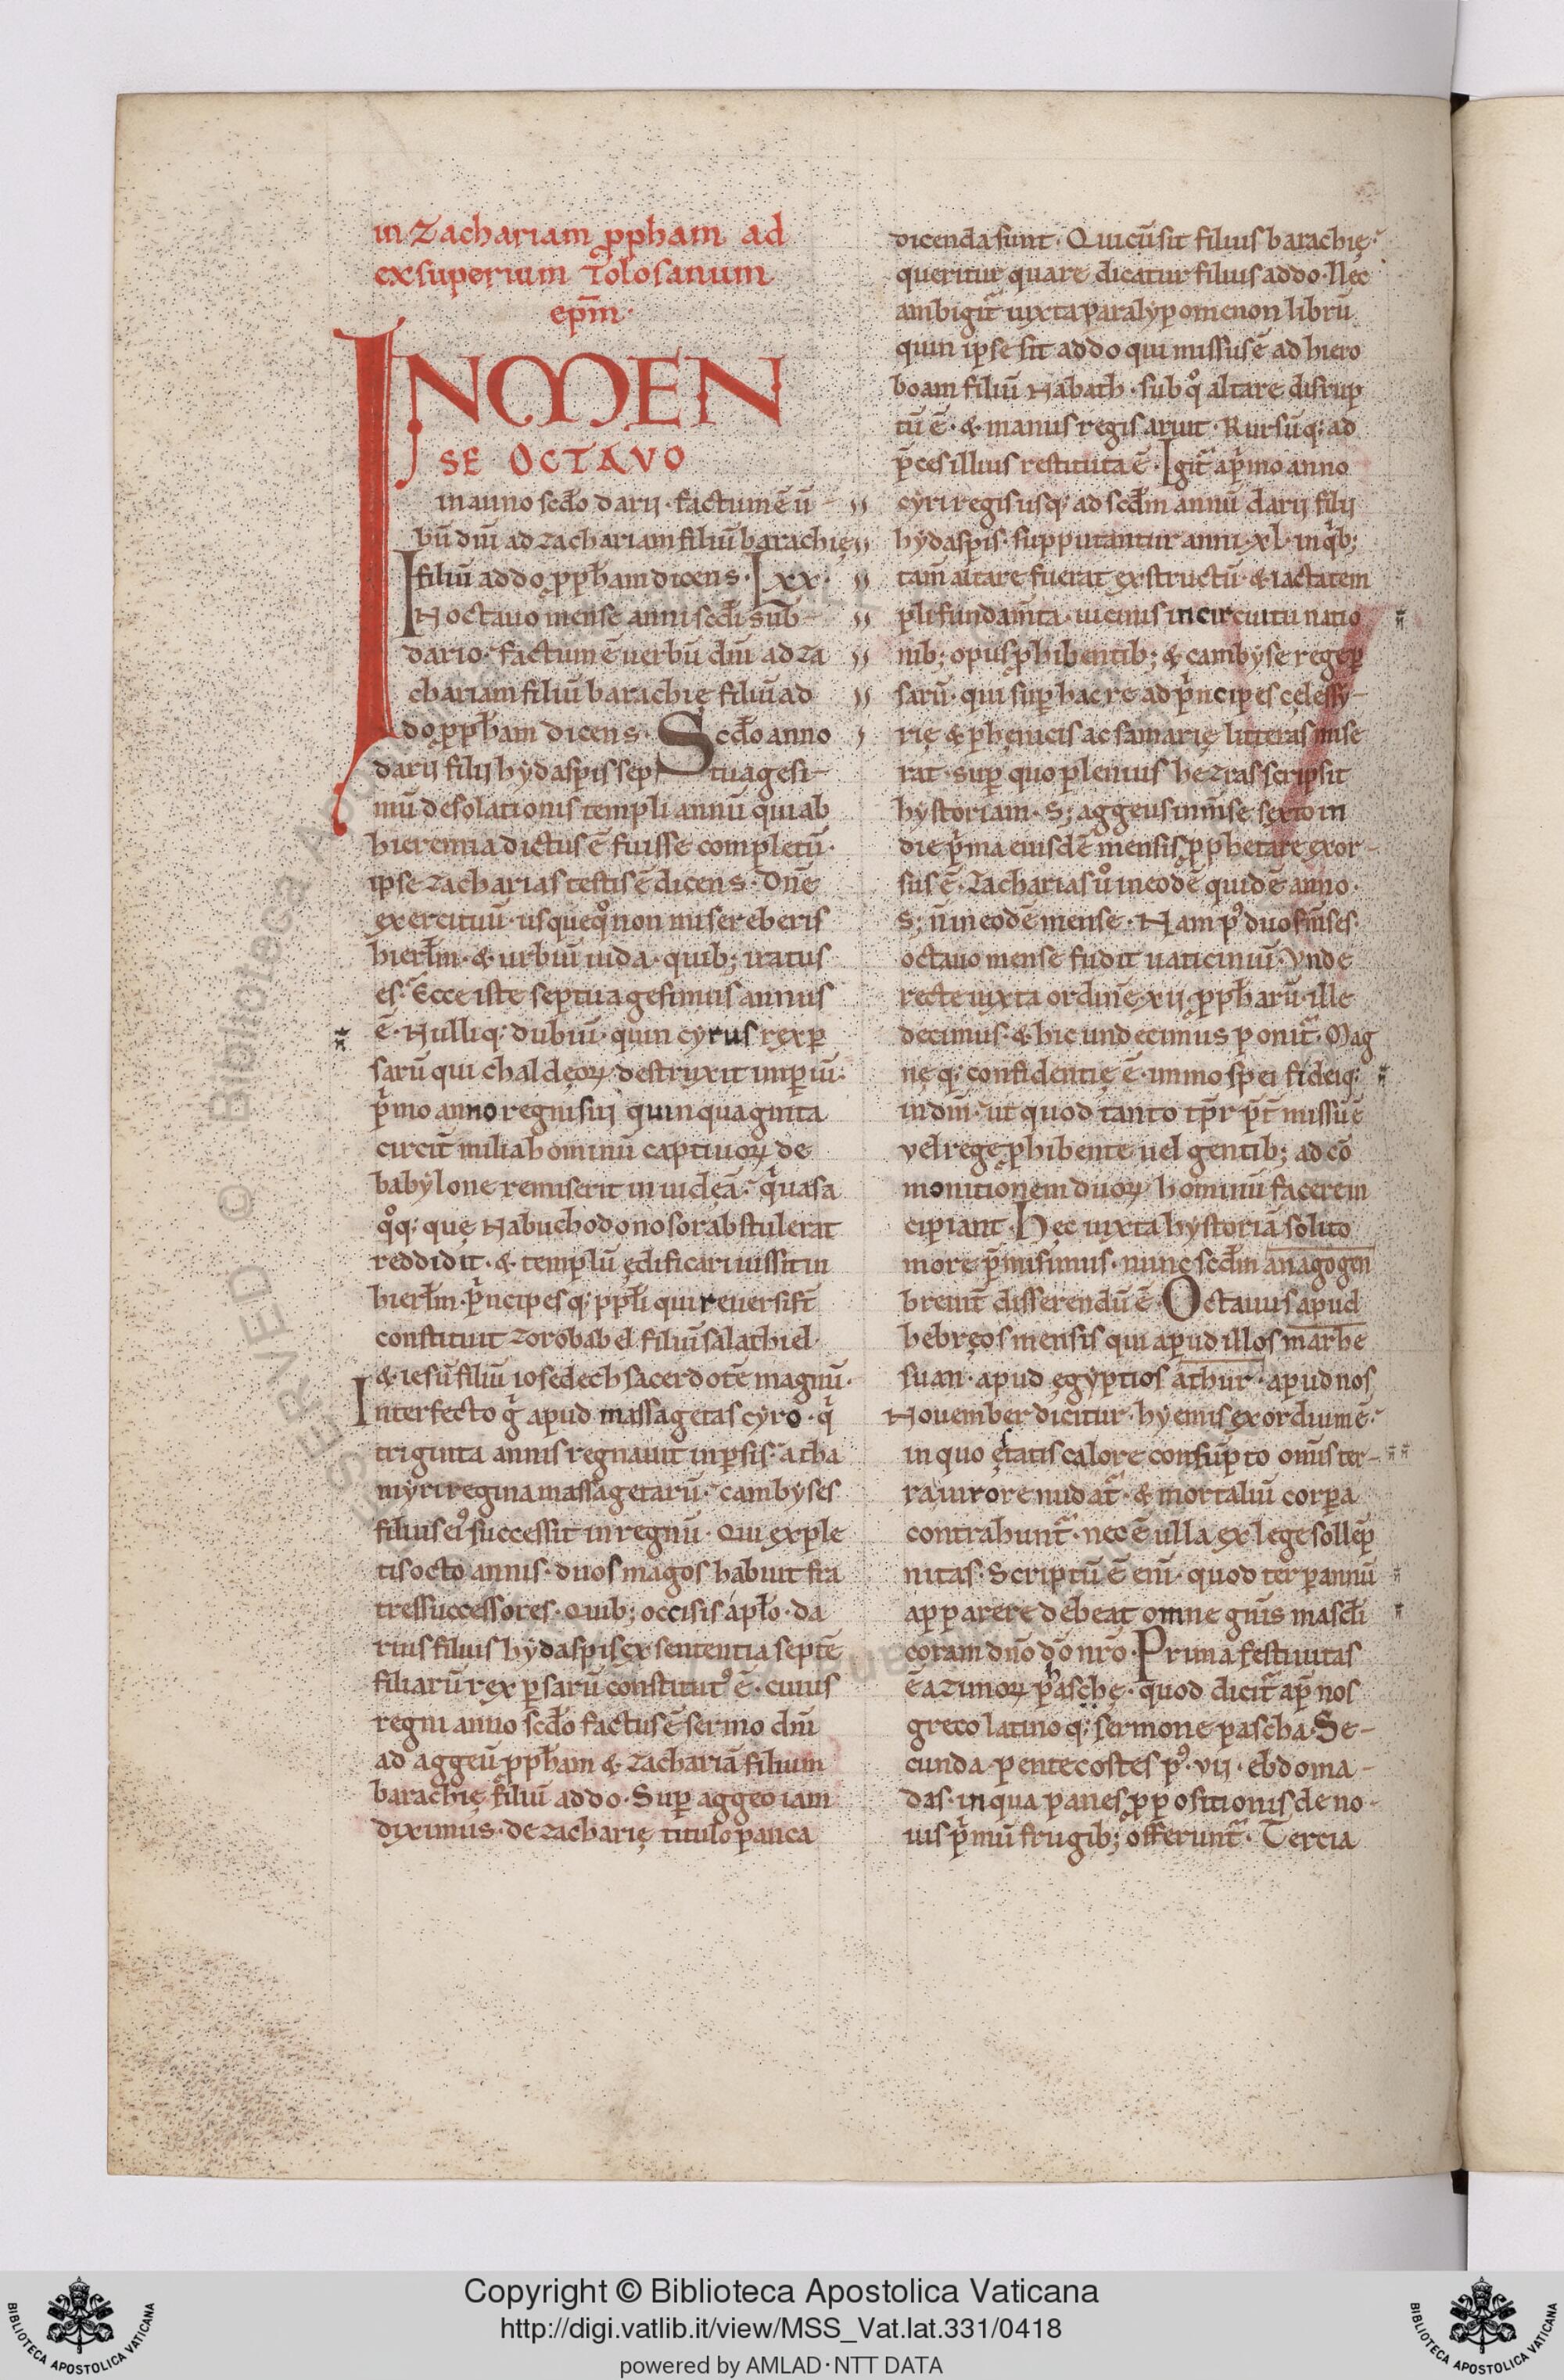 in Zachariam ꝓph̄am ad
exsuperium Tolosanum
ep̄m·
INMEN
SE OCTAVO
in anno sc̄do darij· factum ē ū
bū dn̄i ad zachariam filiū barachię
filiū addo ꝓph̄am dicens· lxx·
IN octauo mense anni sc̄di sub
dario· factum ē uerbū dn̄i ad za
chariam filiū barachię filiū ad
do ꝓph̄am dicens· Sc̄do anno
darij filij hydaspis septuagesi-
mū desolationis templi annū qui ab
hieremia dictus ē fuisse completū·
ipse zacharias testis ē dicens· Dn̄e
exercituū· usquequo non misereberis
hierlm̄· & urbiū iuda· quib; iratus
es· Ecce iste septuagesimus annus
ē· Nulliq; dubiū· quin cyrus rex ꝑ
sarū qui chaldeoꝝ destruxit imꝑiū·
pͥmo anno regni sui quinquaginta
circit̄ milia hominū captiuoꝝ de
babylone remiserit in iudęā· qͣ uasa
qͦq; quę Nabuchodonosor abstulerat
reddidit· & templū ędificari iussit in
hierlm̄· pͥncipesq; ppl̄i qui reuersi st̄
constituit zorobabel filiū salathiel·
& iesū filiū iosedech sacerdotē magnū·
Interfecto gͥ apud massagetas cyro· qͥ
triginta annis regnauit in ꝑsis· atha
myri regina massagetarū· cambyses
filius eiꝰ successit in regnū· Qui exple
tis octo annis· duos magos habuit fra
tres successores· Quib; occisis a ppl̄o· da
rius filius hydaspis ex sententia septē
filiarū rex ꝑsarū constitutꝰ ē· cuius
regni anno sc̄do factus ē sermo dn̄i
ad aggeū ꝓph̄am & zachariā filium
barachię filiū addo· Suꝑ aggeo iam
diximus· de zacharię titulo pauca
dicenda sunt· Qui cū sit filius barachię·
queritur quare dicatur filius addo· Nec
ambigit̄ iuxta paralypomenon librū
quin ipse sit addo qui missus ē ad hiero
boam filiū Nabath· sub qͦ altare disrup
tū ē· & manus regis aruit· Rursūq; ad
p̄ces illius restituta ē· Igit̄ a pͥmo anno
cyri regis usq; ad sc̄dm annū darij filij
hydaspis· supputantur anni xl· in qͥb;
tam̄ altare fuerat exstructū· & iacta tem
pli fundam̄ta· uicinis in circuitu natio
nib; opus ꝓhibentib; & cambyse rege ꝑ
sarū· qui suꝑ hac re ad pͥncipes cęlessy-
rię & phęnicis ac samarię litteras mise
rat· suꝑ quo plenius hezras scripsit
hystoriam· S; aggeus in m̄se sexto in
die pͥma eiusdē mensis ꝓphetare exor-
sus ē· Zacharias uͦ in eodē quidē anno·
S; n̄ in eodē mense· Nam pꝰ duos m̄ses·
octauo mense fudit uaticiniū· Vnde
recte iuxta ordinē xij ꝓph̄arū· ille
decimus· & hic undecimus ponit̄· Mag
nę q; confidentię ē· immo spei fideiq;
in dn̄m· ut quod tanto tp̄r p̄t̄missū ē
vel rege ꝓhibente uel gentib; ad cō
monitionem duoꝝ hominū facere in
cipiant· Hęc iuxta hystoriā solito
more p̄misimus· nunc sc̄dm anagogen
breuit̄ disserendū ē· Octauus apud
hebręos mensis qui apud illos marhe
suan· apud ęgyptios athur· apud nos
Nouember dicitur· hyemis exordium ē·
in quo ęstatis calore consūpto om̄is ter-
ra uirore nudat̄· & mortaliū corpora
contrahunt̄· nec ē ulla ex lege sollēp
nitas· Scriptū ē eni̅· quod ter ꝑ annū
apparere debeat omne gn̄s mascl̄i
coram dn̄o dō nr̄o· Prima festiuitas
ē azimoꝝ phasche· quod dicit̄ ap̄ nos
greco latinoq; sermone pascha· Se-
cunda· pentecostes pꝰ· vij· ebdoma-
das· in qua panes ꝓpositionis de no-
uis pͥmū frugib; offerunt̄· Tercia
Copyright © Biblioteca Apostolica Vaticana
http://digi.vatlib.it/view/MSS_Vat.lat.331/0418
powered by AMLAD·NTT DATA
BIBLIOTECA APOSTOLICA VATICANA
BIBLIOTECA APOSTOLICA VATICANA